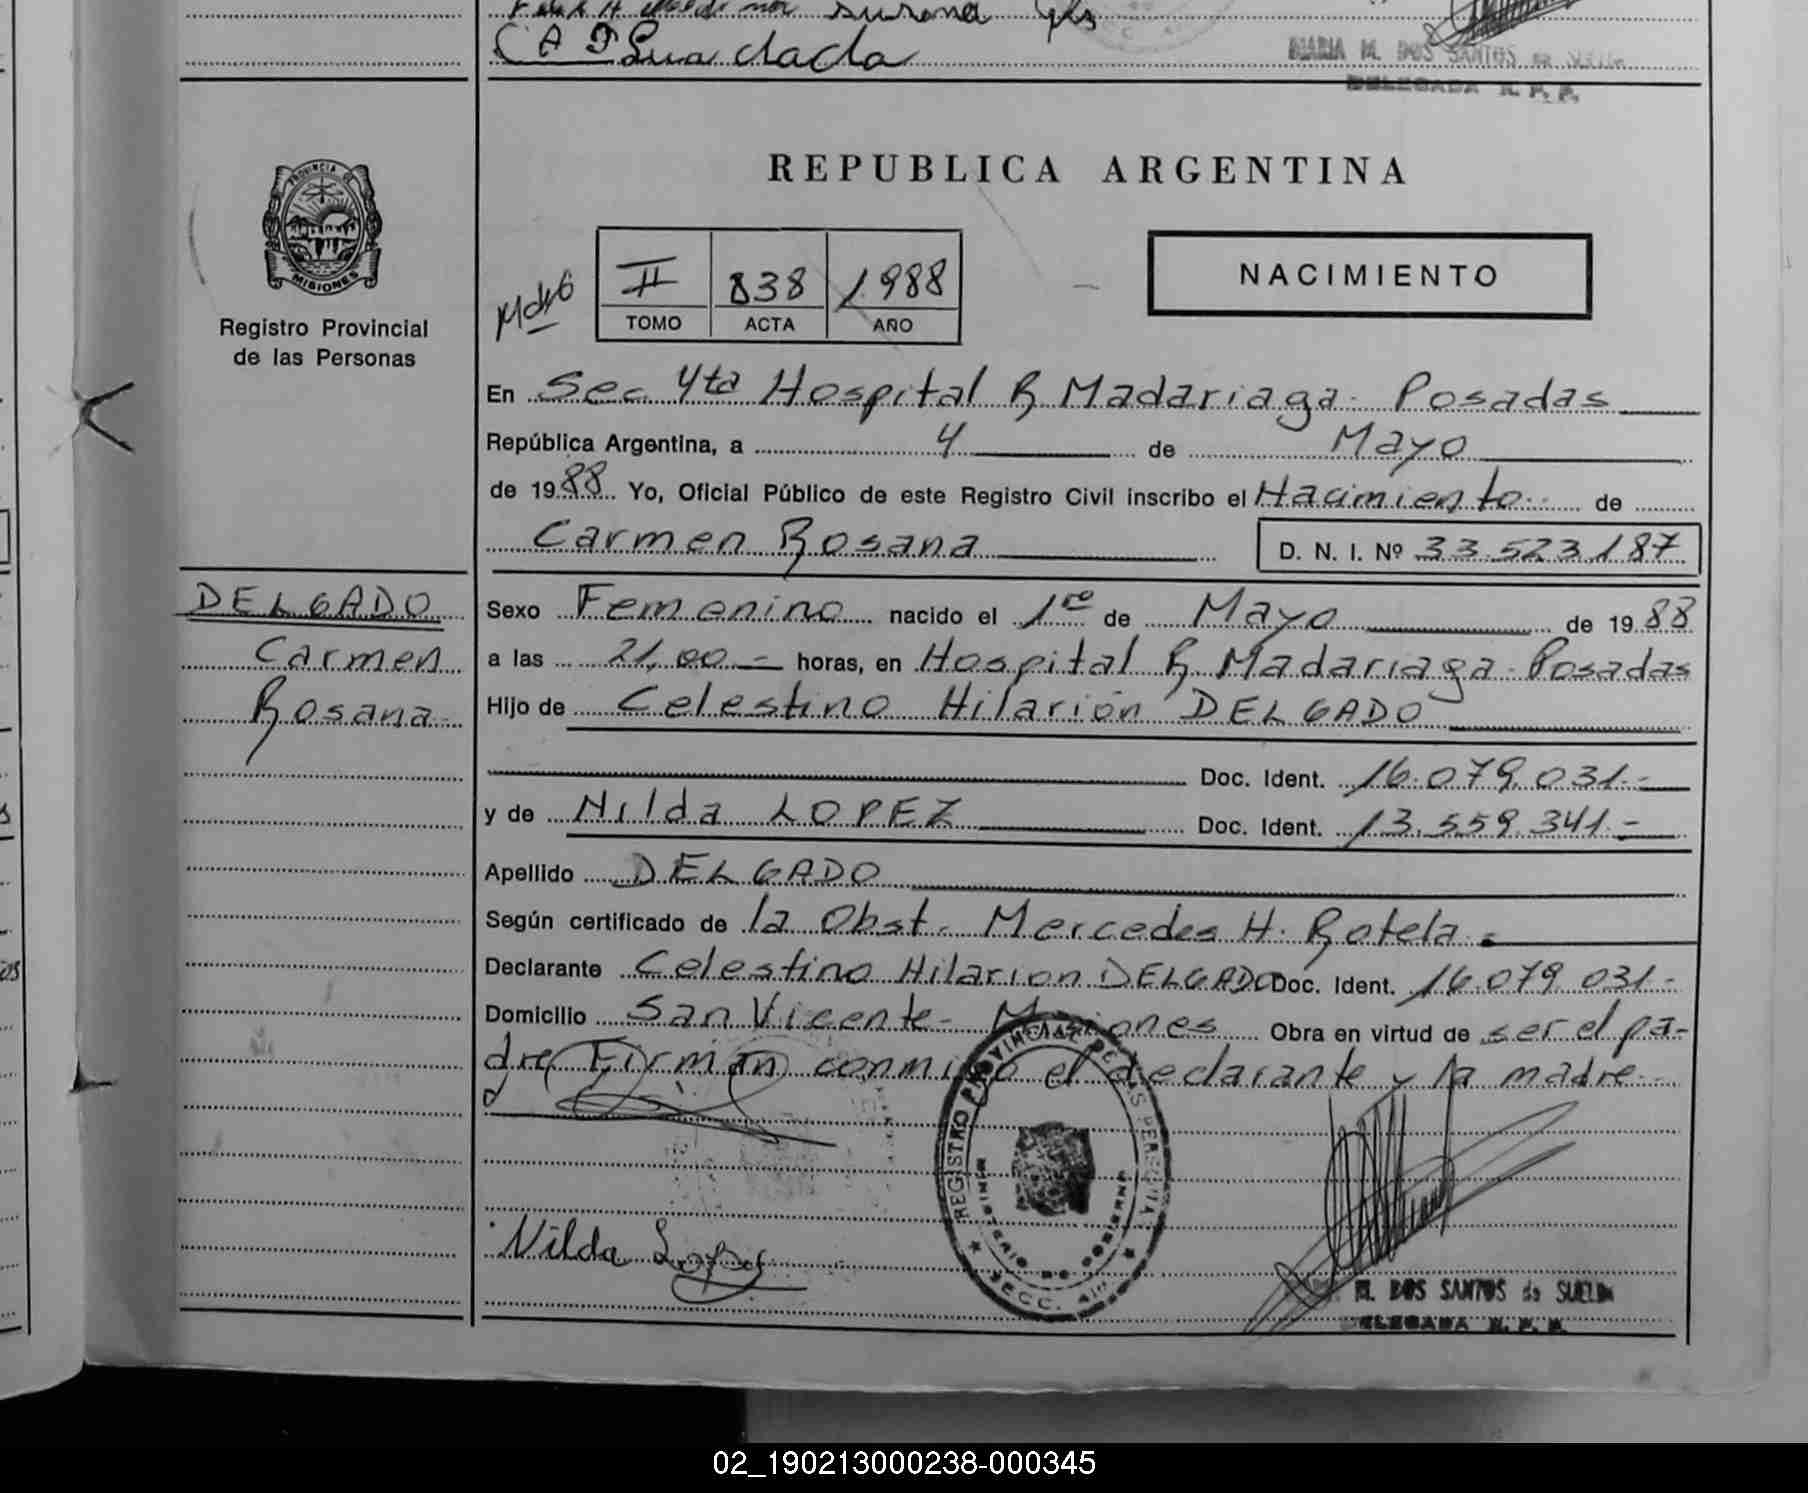 susana
MARIA M. DOS SANTOS de SUELDO
DELEGADA R. P. P.
PROVINCIA DE
MISIONES
Registro Provincial
de las Personas
REPUBLICA ARGENTINA
II 838 1988
TOMO ACTA AÑO
NACIMIENTO
En Sec 4ta Hospital R Madariaga. Posadas
República Argentina, a 4 de Mayo
de 1988 Yo, Oficial Público de este Registro Civil inscribo el Nacimiento de
Carmen Rosana D. N. I. Nº 33.523.187
DELGADO
Carmen
Rosana
Sexo Femenino nacido el 1ro de Mayo de 1988
a las 21,00 - horas, en Hospital R Madariaga - Posadas
Hijo de Celestino Hilarión DELGADO
Doc. Ident. 16.079.031.-
y de Nilda LOPEZ Doc. Ident. 13.559.341.-
Apellido DELGADO
Según certificado de la Obst. Mercedes H. Rotela.-
Declarante Celestino Hilarion DELGADO Doc. Ident. 16.079.031-
Domicilio San Vicente - Misiones Obra en virtud de ser el pa-
dre Firman conmigo el declarante y la madre
REGISTRO PROVINCIAL DE LAS PERSONAS
MINISTERIO DE GOBIERNO
SECC. 4ta
Nilda Lopez
M. DOS SANTOS de SUELDO
DELEGADA R. P. P.
02_190213000238-000345